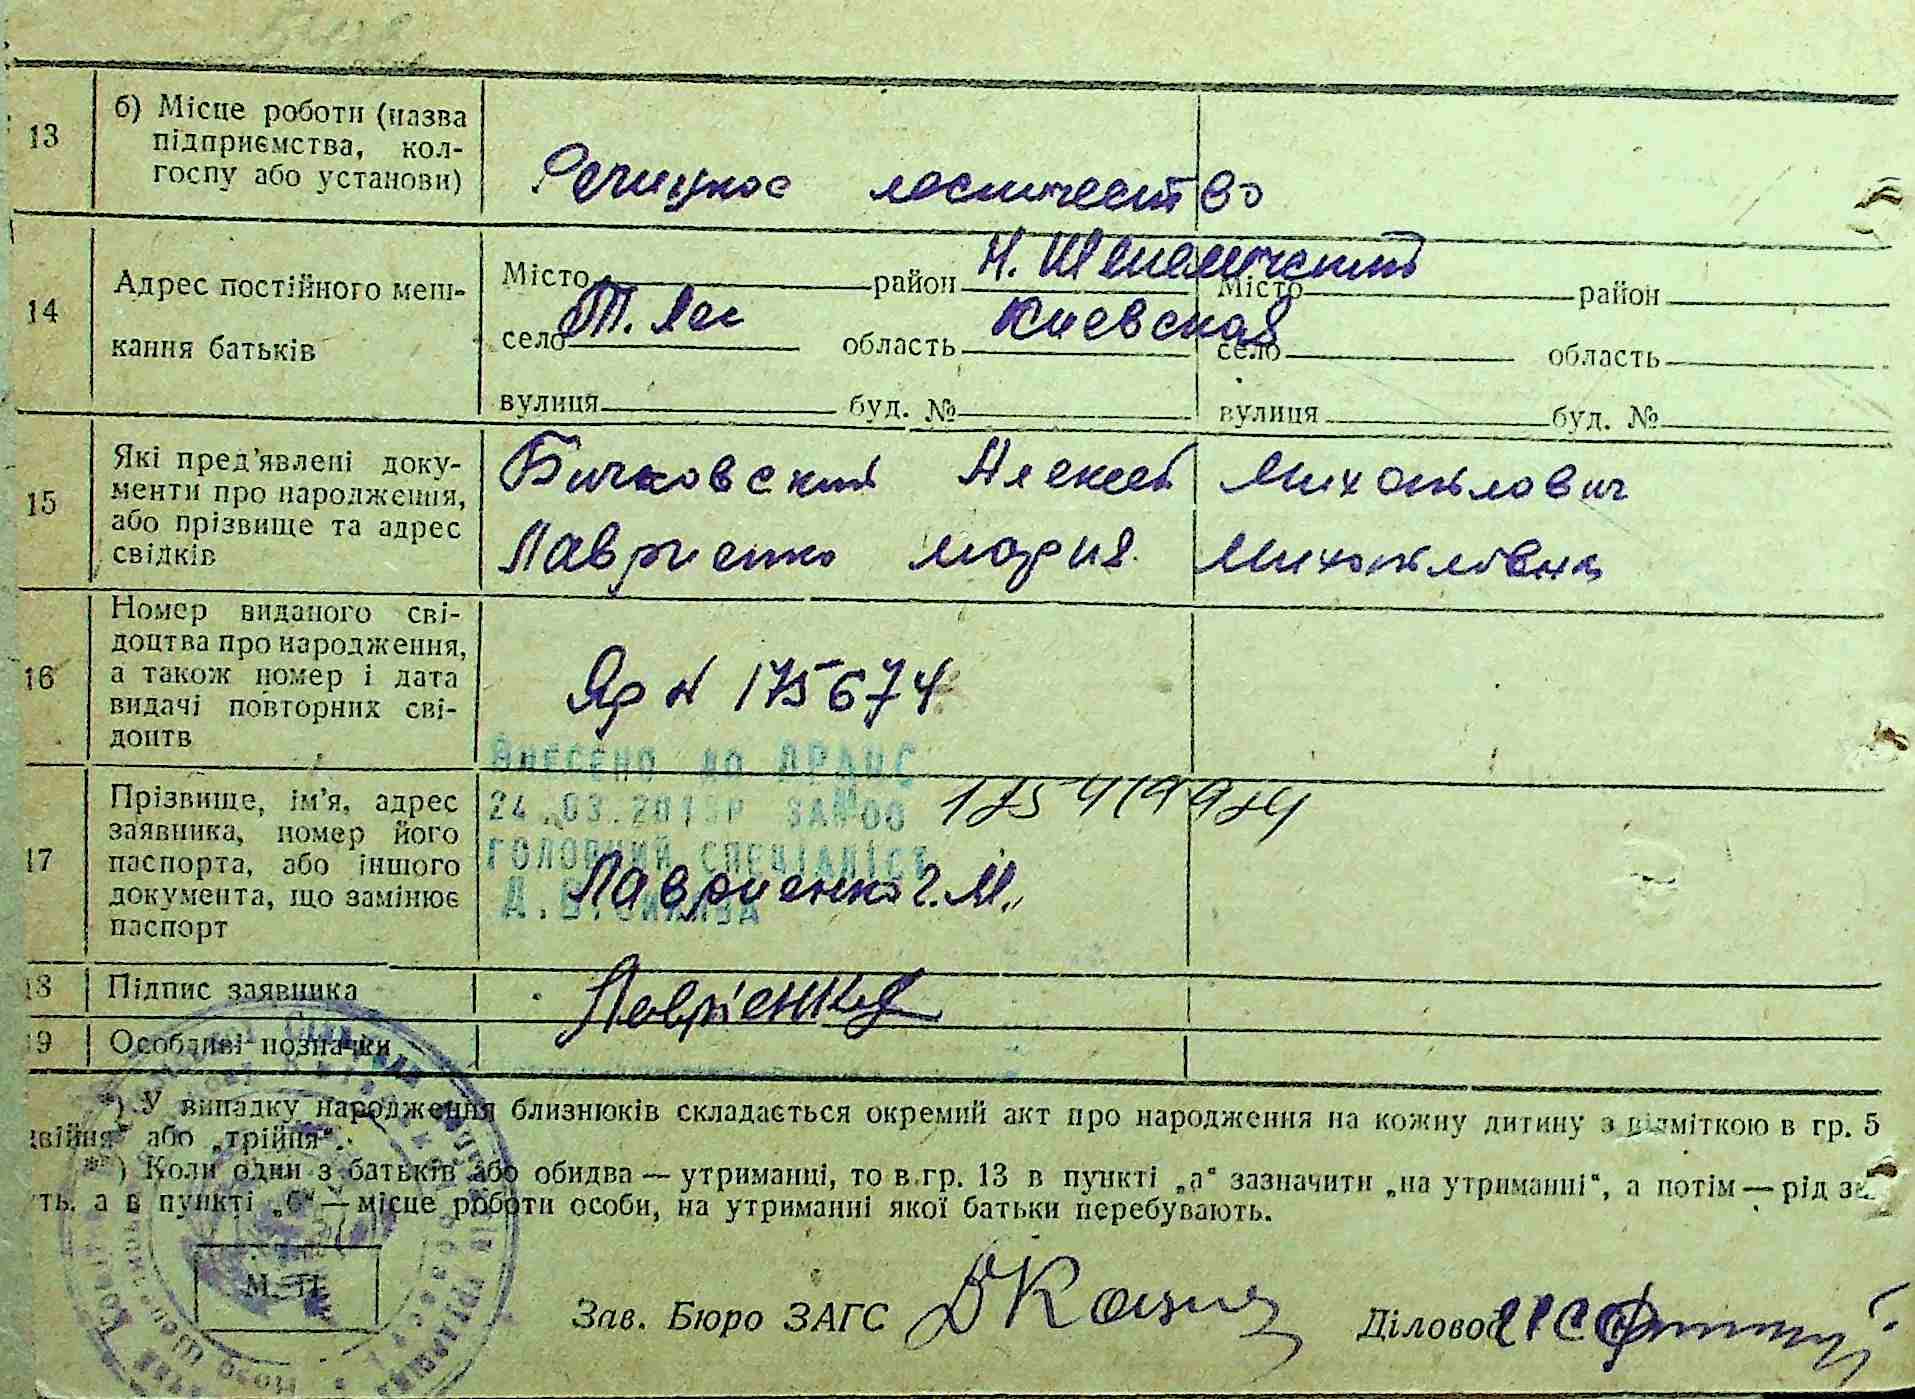 13
б) Місце роботи (назва
підприємства, кол-
госпу або установи)
Речицкое лесничество
14
Адрес постійного меш-
кання батьків
Місто район Н. Шепеличский Місто район
село Т. Лес область Киевская село область
вулиця буд. № вулиця буд. №
15
Які пред'явлені доку-
менти про народження,
або прізвище та адрес
свідків
Бичковский Алексей Михайлович
Лавриенко Мария Михайловна
16
Номер виданого сві-
доцтва про народження,
а також номер і дата
видачі повторних сві-
доцтв
Яр N 175674
ВНЕСЕНО ДО ДРАЦС
24.03.201 Р ЗА №00
ГОЛОВНИЙ СПЕЦІАЛІСТ
17
Прізвище, ім'я, адрес
заявника, номер його
паспорта, або іншого
документа, що замінює
паспорт
Лавриенко Г. М.
18
Підпис заявника
Лаврієнко
19
Особливі позначки
*) У випадку народження близнюків складається окремий акт про народження на кожну дитину з відміткою в гр. 5
двійня" або „трійня".
) Коли один з батьків або обидва — утриманці, то в гр. 13 в пункті „а" зазначити „на утриманні", а потім — рід за
ть, а в пункті „б" — місце роботи особи, на утриманні якої батьки перебувають.
М. П.
Зав. Бюро ЗАГС
Діловод